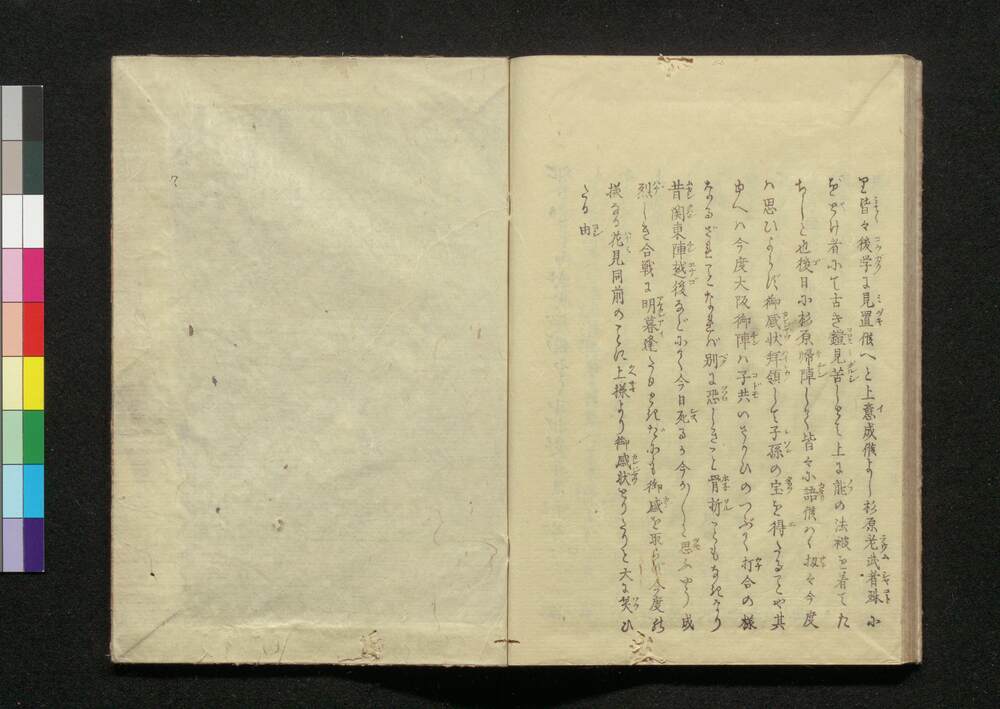 皆々後学に見置候へと上意成候よし杉原老武者殊に
どけ者にて古き鎧見苦しとて上に能の法被を着てた
ちしと也後日に杉原帰陣して皆々に語候ハく扨々今度
ハ思ひよらず御感状拝領して子孫の宝を得たることや其
由へハ今度大阪御陣ハ子共いさかひのつぶて打合の様
なるざれことなれば別に恐しきこと骨折こともなきなり
昔関東陣越後などにて今日死るか今かと思ふやう成
烈しき合戦に明暮逢たる時だにも御感を取らず今度の
様なる花見同前のことに上様より御感状とりたりと大に笑ひ
たる由